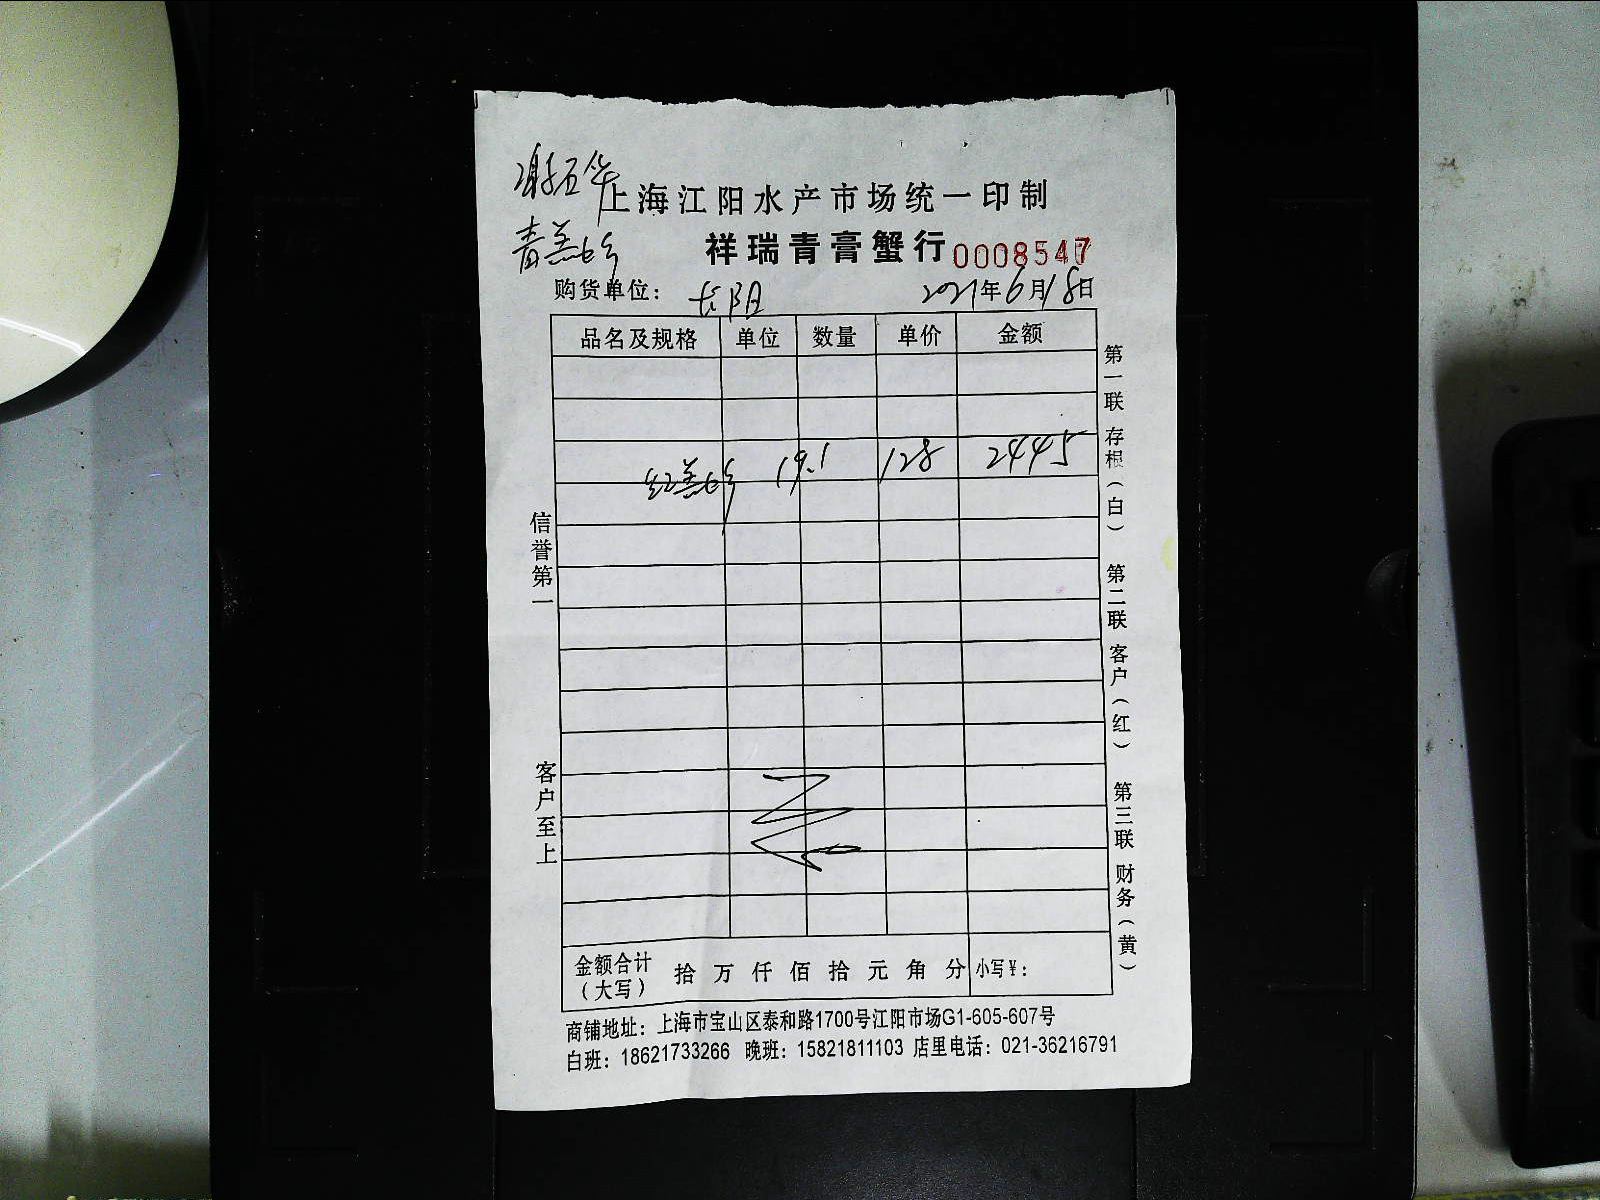 上海江阳水产市场统一印制
祥瑞青膏蟹行 0008547
购货单位: 长阳 2021年6月18日
品名及规格 单位 数量 单价 金额
19.1 128 2445
信誉第一
客户至上
第一联 存根(白) 第二联 客户(红) 第三联 财务(黄)
金额合计(大写) 拾 万 仟 佰 拾 元 角 分 小写¥:
商铺地址: 上海市宝山区泰和路1700号江阳市场G1-605-607号
白班: 18621733266 晚班: 15821811103 店里电话: 021-36216791